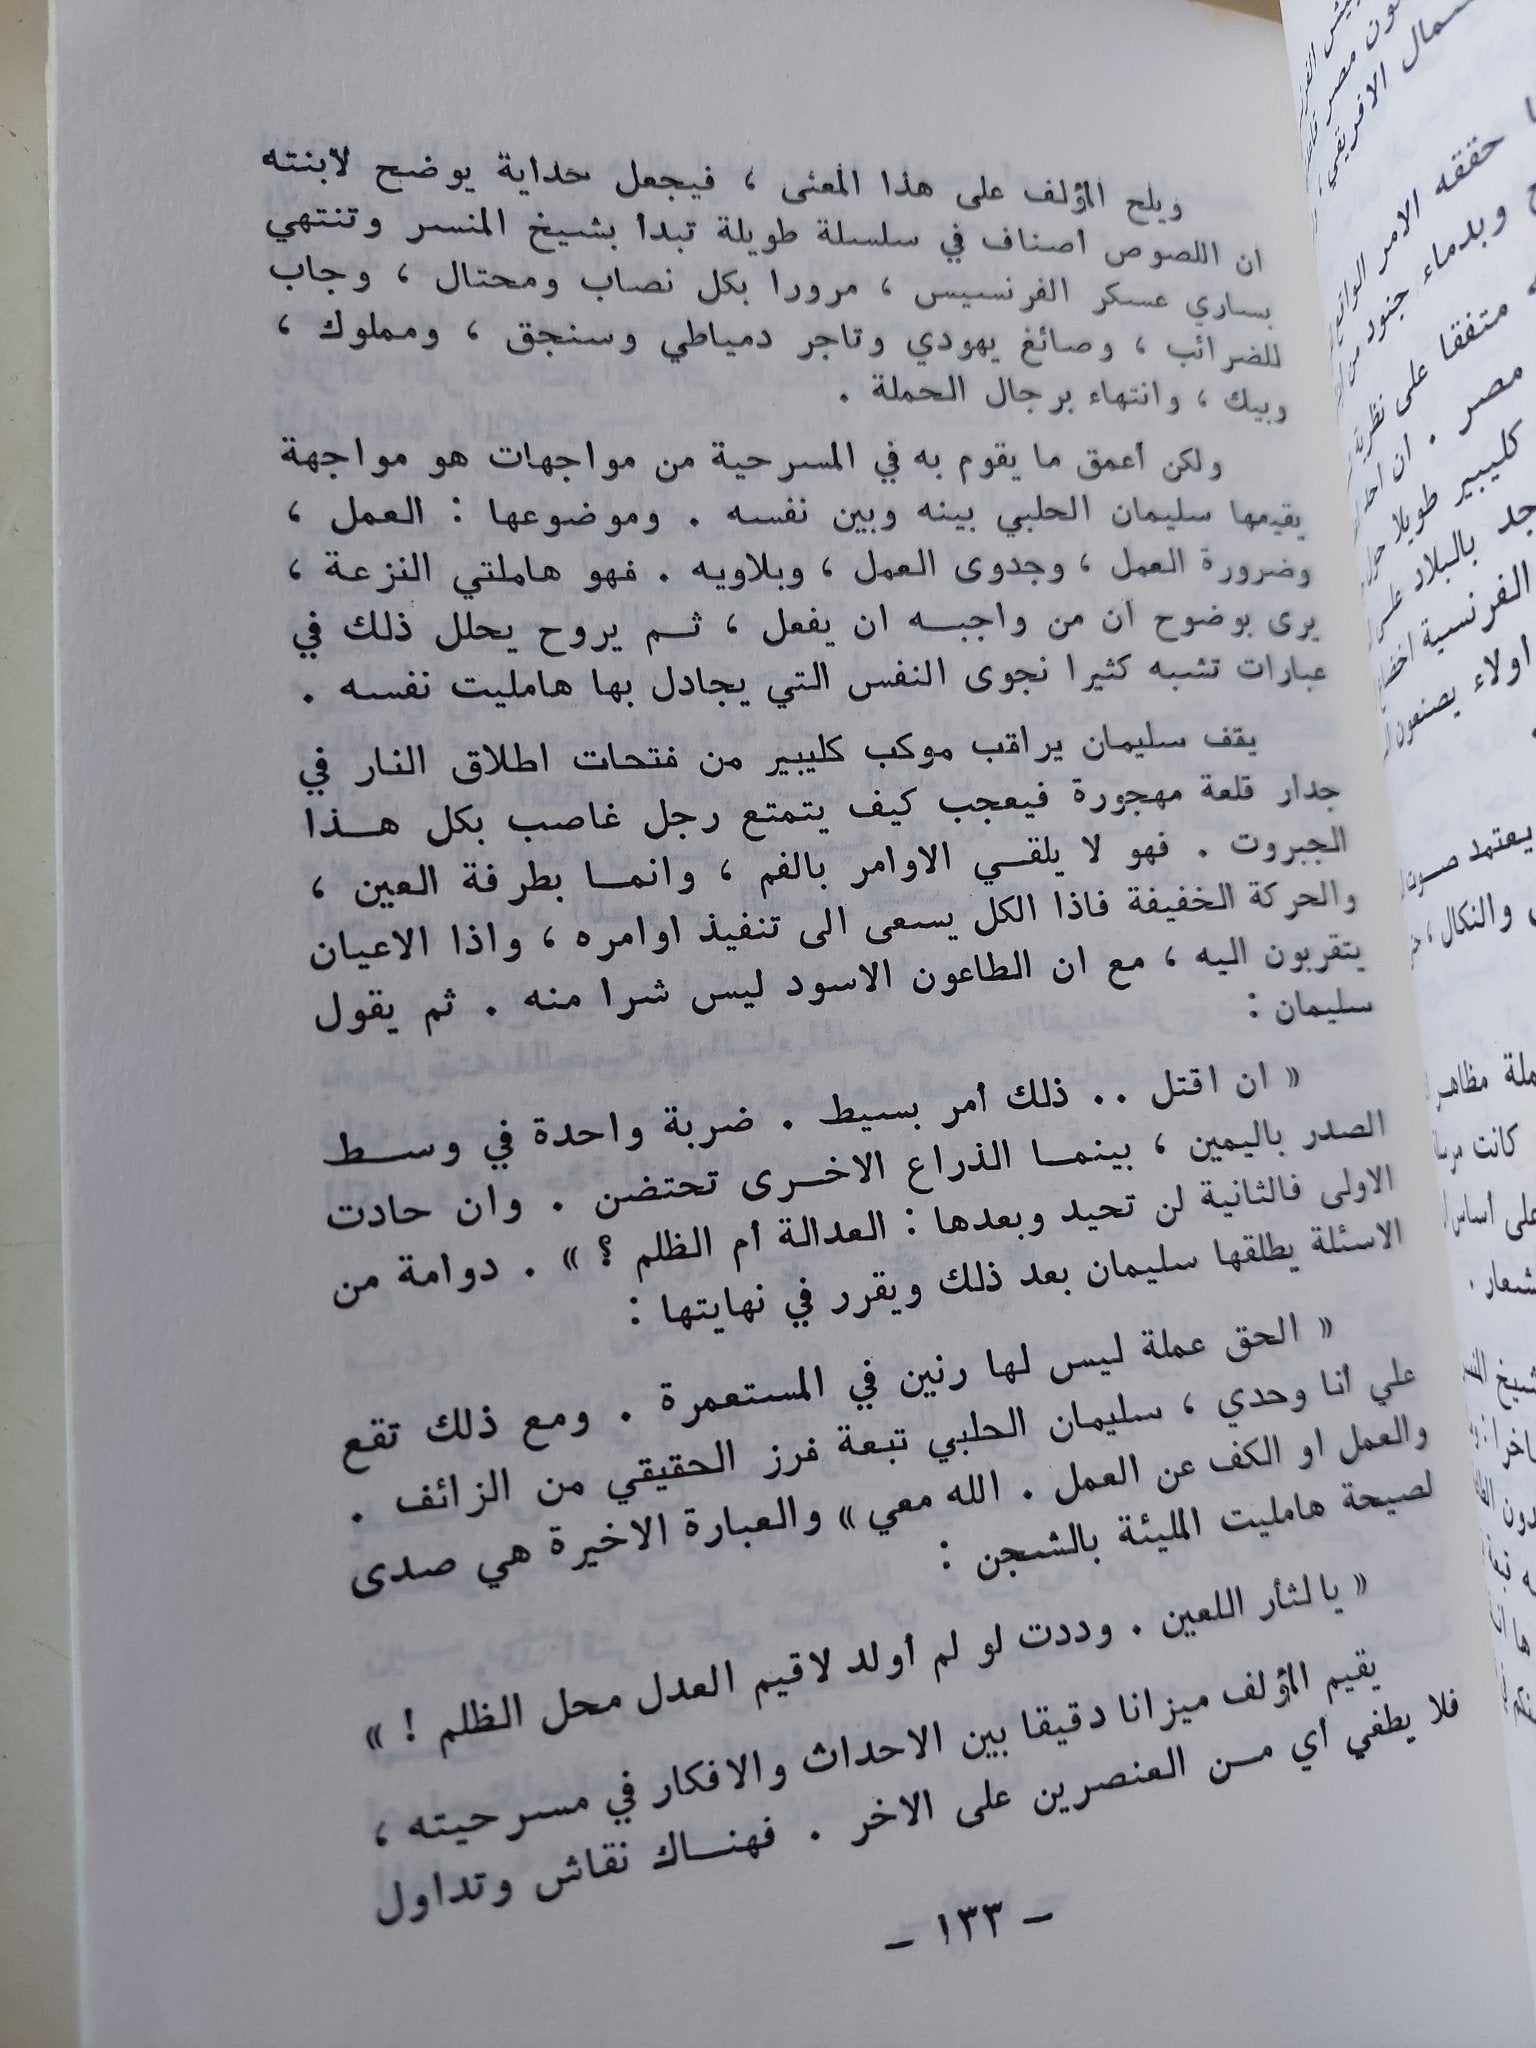 ويلح المؤلف على هذا المعنى ، فيجعل حداية يوضح لابنته
ان اللصوص أصناف في سلسلة طويلة تبدأ بشيخ المنسر وتنتهي
بساري عسكر الفرنسيس ، مرورا بكل نصاب ومحتال ، وجاب
للضرائب ، وصائغ يهودي وتاجر دمياطي وسنجق ، ومملوك ،
وبيك ، وانتهاء برجال الحملة .
ولكن أعمق ما يقوم به في المسرحية من مواجهات هو مواجهة
يقيمها سليمان الحلبي بينه وبين نفسه . وموضوعها : العمل ،
وضرورة العمل ، وجدوى العمل ، وبلاويه . فهو هاملتي النزعة ،
يرى بوضوح ان من واجبه ان يفعل ، ثم يروح يحلل ذلك في
عبارات تشبه كثيرا نجوى النفس التي يجادل بها هامليت نفسه .
يقف سليمان يراقب موكب كليبير من فتحات اطلاق النار في
جدار قلعة مهجورة فيعجب كيف يتمتع رجل غاصب بكل هذا
الجبروت . فهو لا يلقي الاوامر بالفم ، وانما بطرفة العين ،
والحركة الخفيفة فاذا الكل يسعى الى تنفيذ اوامره ، واذا الاعيان
يتقربون اليه ، مع ان الطاعون الاسود ليس شرا منه . ثم يقول
سليمان :
« ان اقتل .. ذلك أمر بسيط . ضربة واحدة في وسط
الصدر باليمين ، بينما الذراع الاخرى تحتضن . وان حادت
الاولى فالثانية لن تحيد وبعدها : العدالة أم الظلم ؟ » . دوامة من
الاسئلة يطلقها سليمان بعد ذلك ويقرر في نهايتها :
« الحق عملة ليس لها رنين في المستعمرة . ومع ذلك تقع
علي انا وحدي ، سليمان الحلبي تبعة فرز الحقيقي من الزائف .
والعمل او الكف عن العمل . الله معي » والعبارة الاخيرة هي صدى
لصيحة هامليت المليئة بالشجن :
« يالثأر اللعين . وددت لو لم أولد لاقيم العدل محل الظلم ! »
يقيم المؤلف ميزانا دقيقا بين الاحداث والافكار في مسرحيته ،
فلا يطفي أي من العنصرين على الاخر . فهناك نقاش وتداول
- ١٣٣ -